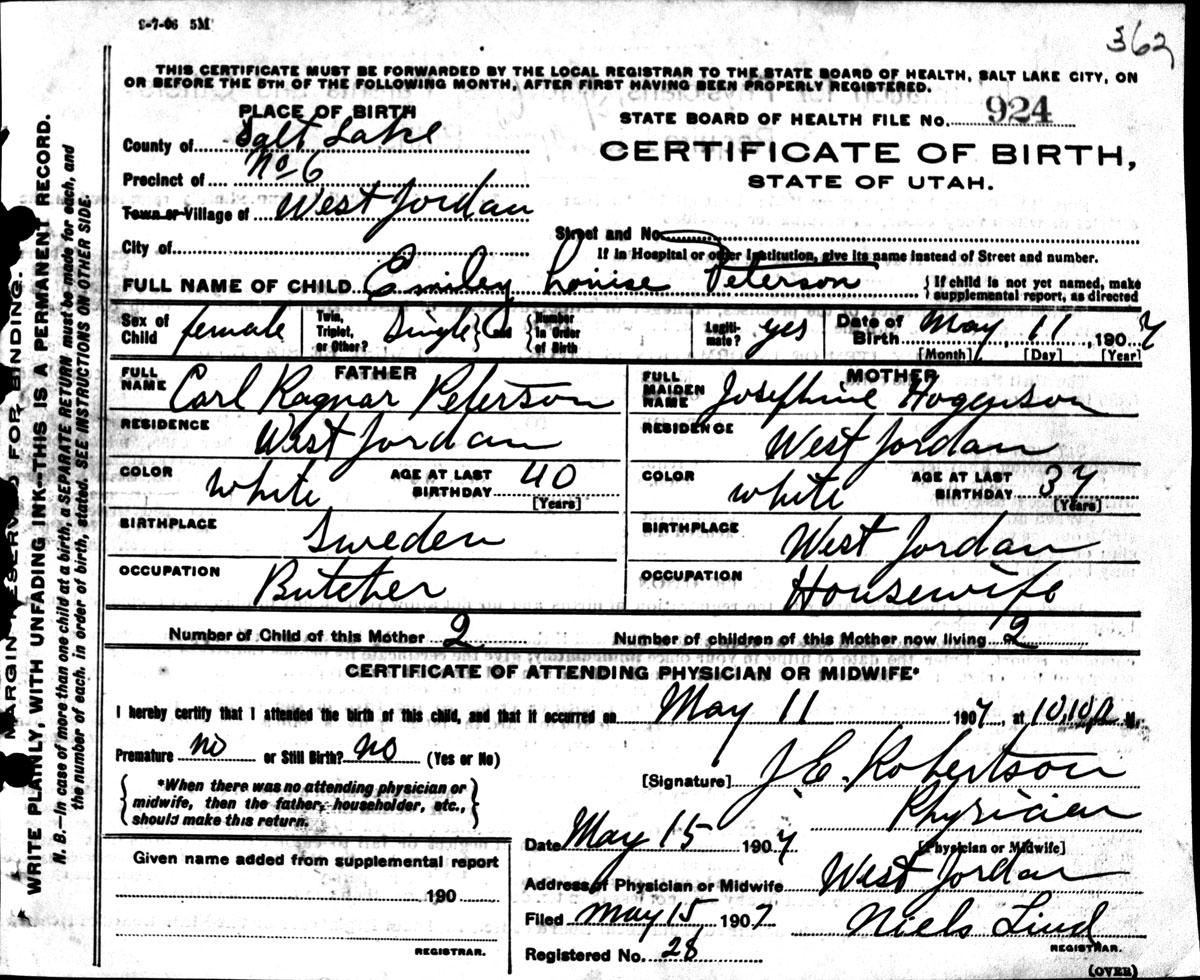 9-7-06 5M
362
THIS CERTIFICATE MUST BE FORWARDED BY THE LOCAL REGISTRAR TO THE STATE BOARD OF HEALTH, SALT LAKE CITY, ON
OR BEFORE THE 5TH OF THE FOLLOWING MONTH, AFTER FIRST HAVING BEEN PROPERLY REGISTERED.
PLACE OF BIRTH
County of Salt Lake
Precinct of No 6
Town or Village of West Jordan
City of
STATE BOARD OF HEALTH FILE No. 924
CERTIFICATE OF BIRTH,
STATE OF UTAH.
Street and No.
If in Hospital or other Institution, give its name instead of Street and number.
FULL NAME OF CHILD Emiley Louise Peterson {If child is not yet named, make
supplemental report, as directed
Sex of Child female Twin, Triplet, or Other? Single and {Number in Order of Birth Legitimate? yes Date of Birth May 11, 1907
[Month] [Day] [Year]
FATHER
FULL NAME Carl Ragnar Peterson
RESIDENCE West Jordan
COLOR white AGE AT LAST BIRTHDAY 40 [Years]
BIRTHPLACE Sweden
OCCUPATION Butcher
MOTHER
FULL MAIDEN NAME Josephine Hogenson
RESIDENCE West Jordan
COLOR white AGE AT LAST BIRTHDAY 37 [Years]
BIRTHPLACE West Jordan
OCCUPATION Housewife
Number of Child of this Mother 2 Number of children of this Mother now living 2
CERTIFICATE OF ATTENDING PHYSICIAN OR MIDWIFE*
I hereby certify that I attended the birth of this child, and that it occurred on May 11 1907, at 10,10 P M.
Premature no or Still Birth? no (Yes or No)
{*When there was no attending physician or
midwife, then the father, householder, etc.,
should make this return.}
[Signature] J. E. Robertson
Physician
[Physician or Midwife]
Date May 15 1907
Address of Physician or Midwife West Jordan
Filed May 15 1907 Niels Lind
REGISTRAR.
Registered No. 28
(OVER)
Given name added from supplemental report
190
REGISTRAR.
MARGIN RESERVED FOR BINDING.
WRITE PLAINLY, WITH UNFADING INK--THIS IS A PERMANENT RECORD.
N. B.—In case of more than one child at a birth, a SEPARATE RETURN must be made for each, and
the number of each, in order of birth, stated. SEE INSTRUCTIONS ON OTHER SIDE.